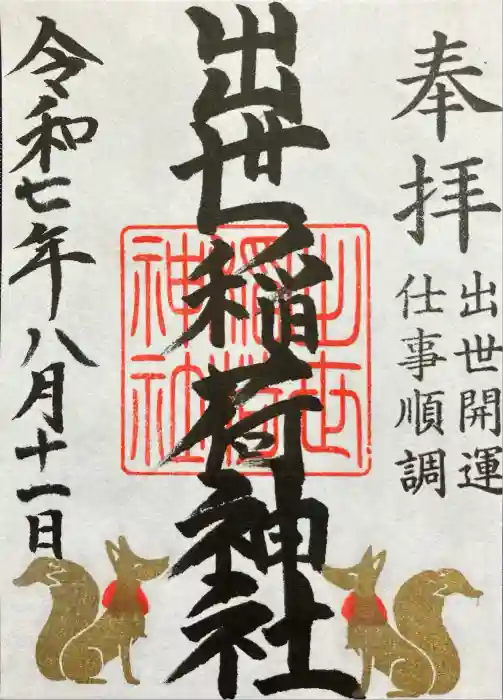 奉拝
出世開運
仕事順調
出世稲荷神社
出世
稲荷
神社
令和七年八月十一日